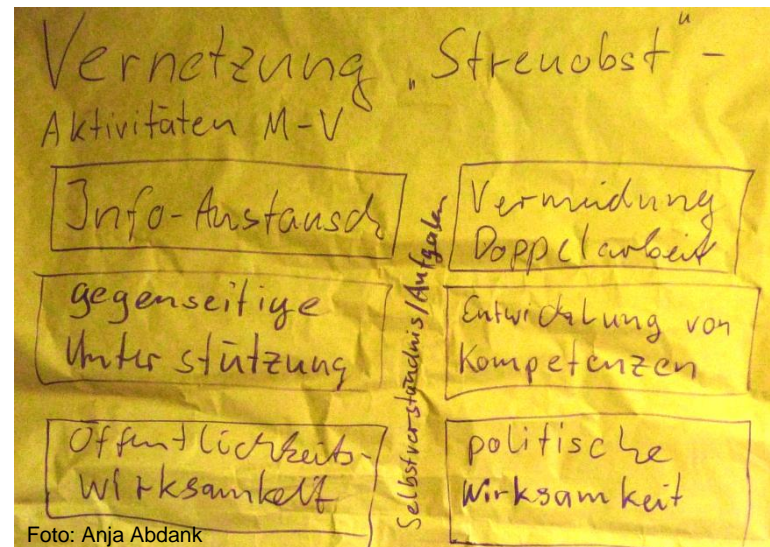 Vernetzung „Streuobst"-
Aktivitäten M-V
Info-Austausch
gegenseitige
Unterstützung
Öffentlichkeits-
wirksamkeit
Selbstverständnis/Aufgaben
Vermeidung
Doppelarbeit
Entwicklung von
Kompetenzen
politische
Wirksamkeit
Foto: Anja Abdank